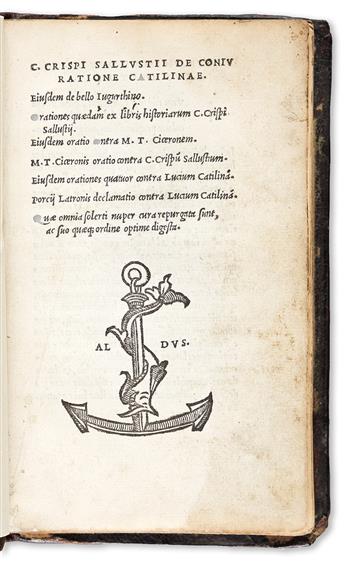 C. CRISPI SALLUSTII DE CONIV
RATIONE CATILINAE.
Eiusdem de bello Iugurthino.
Orationes quædam ex libris historiarum C. Crispi
Sallustij.
Eiusdem oratio contra M. T. Ciceronem.
M. T. Ciceronis oratio contra C. Crispũ Sallustium.
Eiusdem orationes quatuor contra Lucium Catilinã.
Porcij Latronis declamatio contra Lucium Catilinã.
Quæ omnia solerti nuper cura repurgata sunt,
ac suo quæq; ordine optime digesta.
AL DVS.